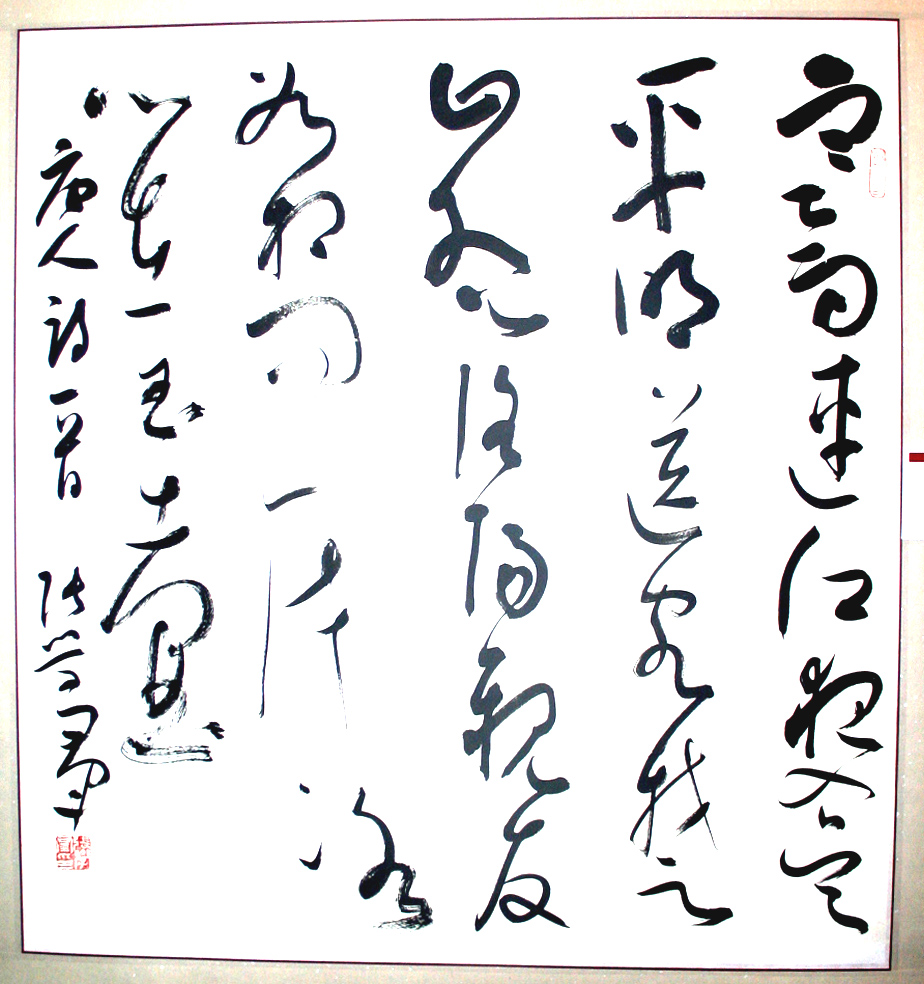 寒雨連江夜入吴
平明送客楚
山孤洛陽親友
如相问一片冰
心在玉壶
唐人诗一首 张学